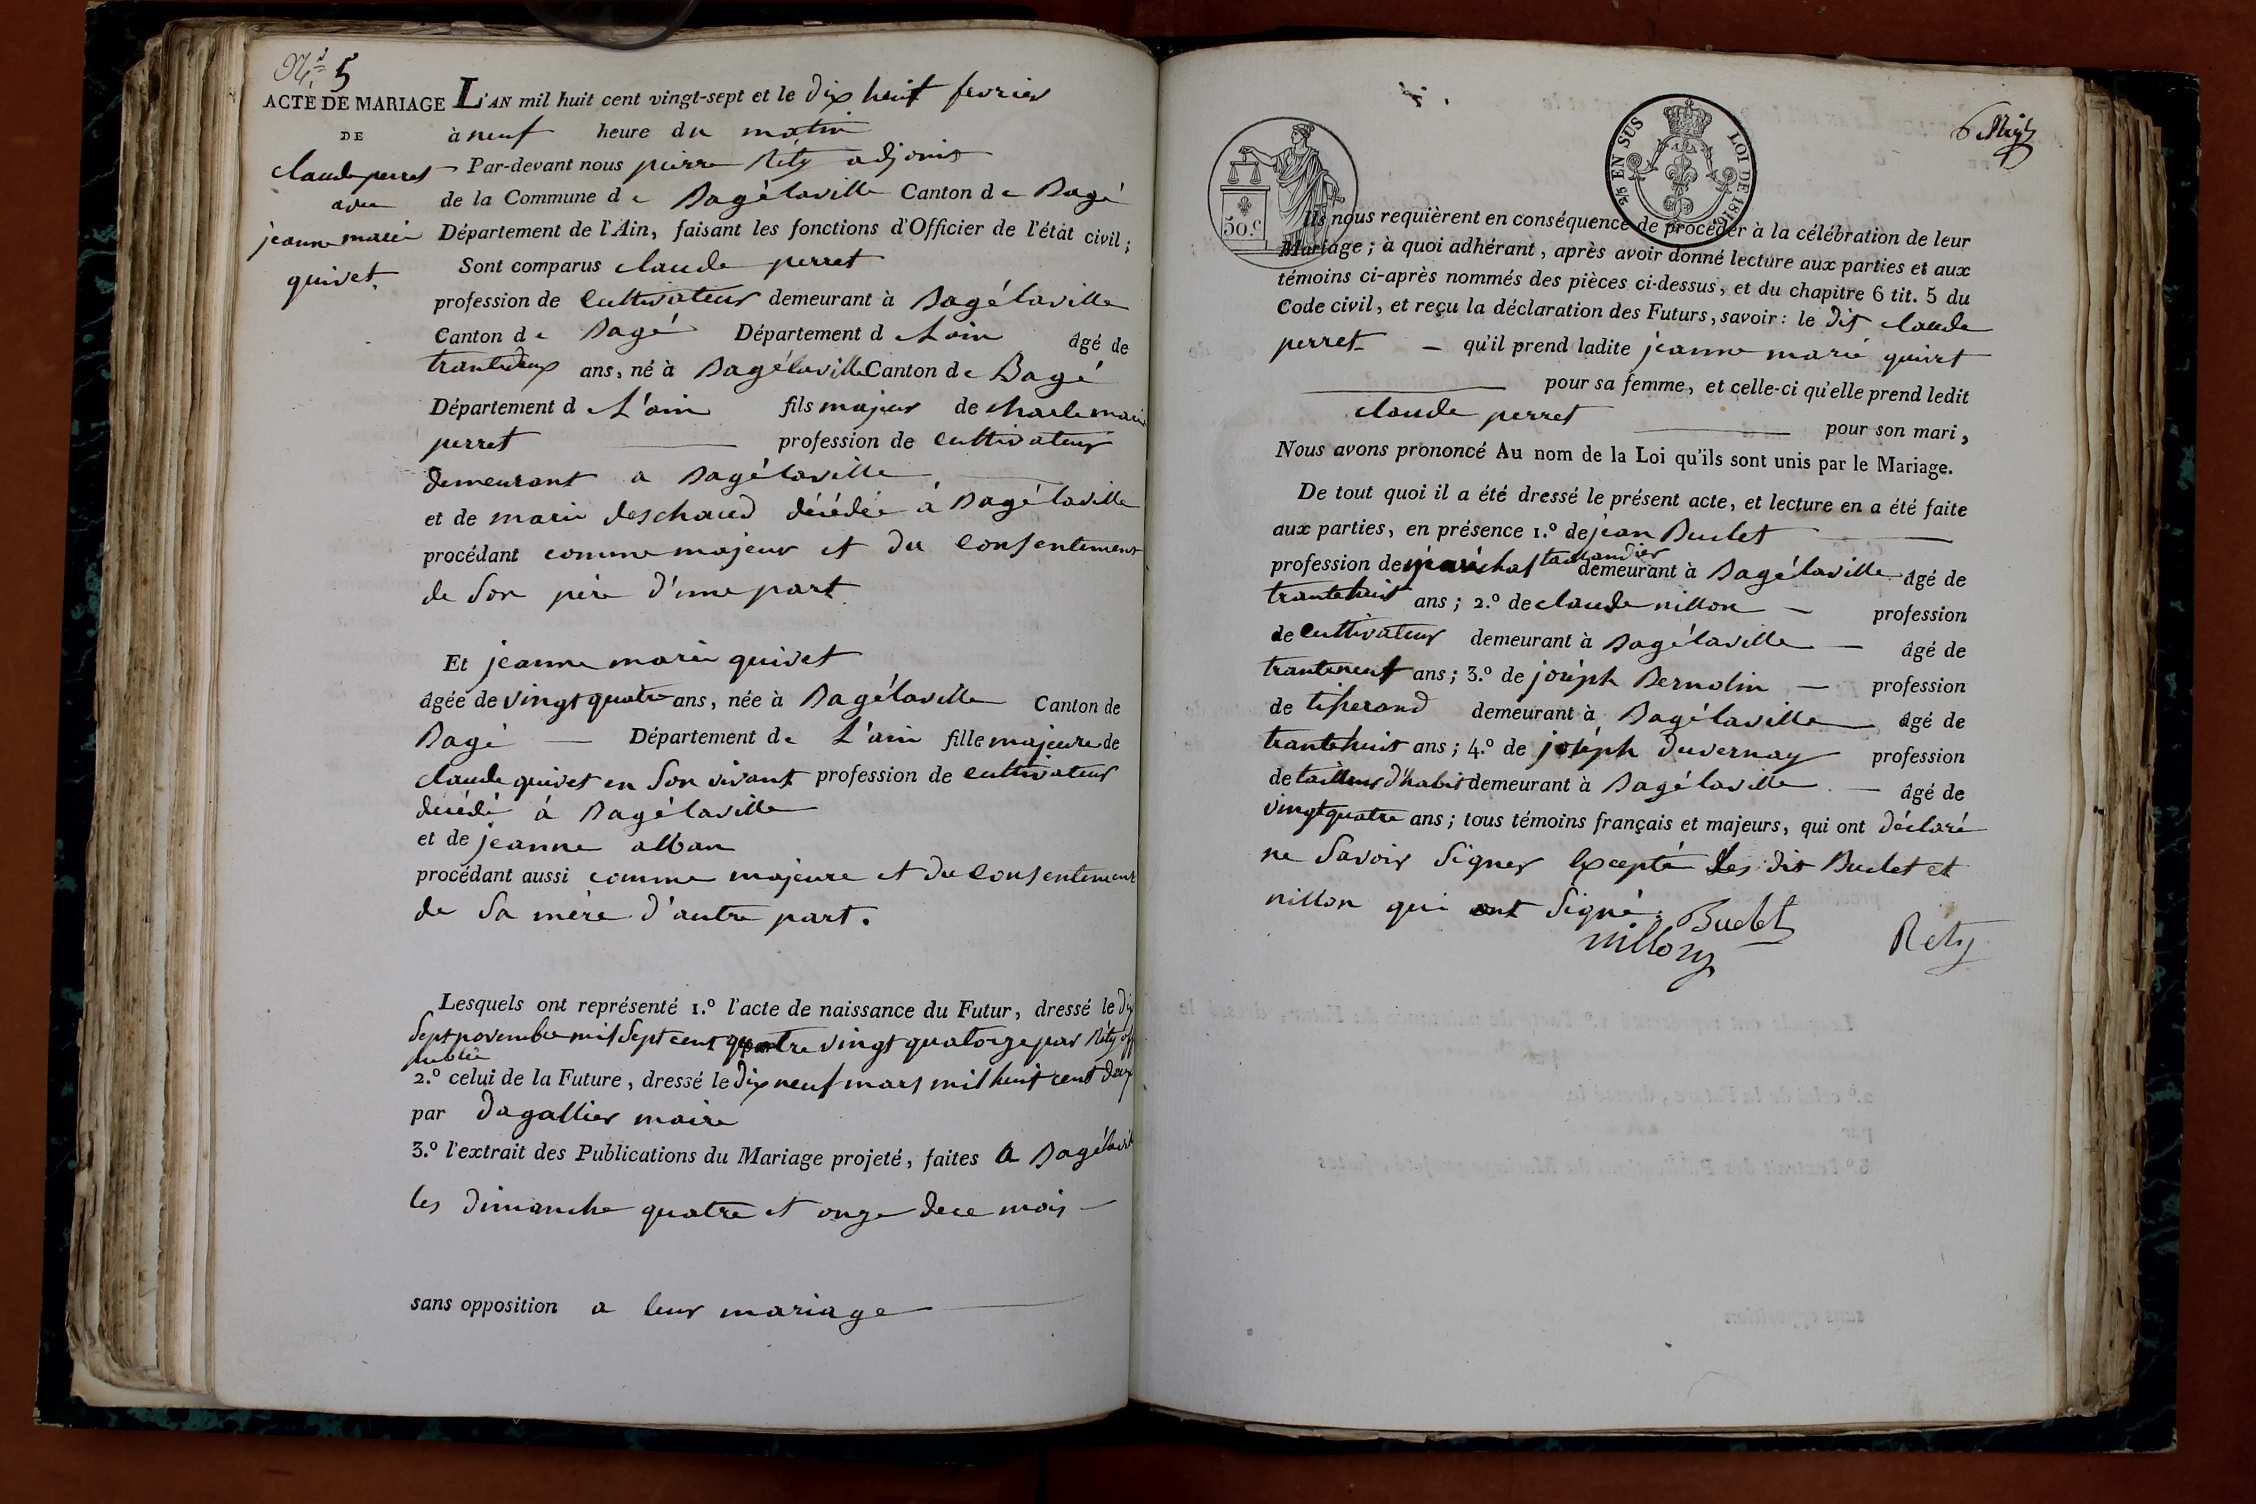 N.° 5
ACTE DE MARIAGE
DE
claude perret
avec
jeanne marie
quivet.
L'AN mil huit cent vingt-sept et le dix huit fevrier
à neuf heure du matin
Par-devant nous pierre Réty adjoint
de la Commune de Bagélaville Canton de Bagé
Département de l'Ain, faisant les fonctions d'Officier de l'état civil;
Sont comparus claude perret
profession de cultivateur demeurant à Bagélaville
Canton de Bagé Département d L'ain âgé de
trantedeux ans, né à Bagélaville Canton de Bagé
Département d L'ain fils majeur de charle marie
perret profession de cultivateur
demeurant a Bagélaville
et de marie deschaud décédée à Bagélaville
procédant comme majeur et du consentement
de son père d'une part.
Et jeanne marie quivet
âgée de vingt quatre ans, née à Bagélaville Canton de
Bagé Département de L'ain fille majeure de
claude quivet en son vivant profession de cultivateur
décédé à Bagélaville
et de jeanne alban
procédant aussi comme majeure et du consentement
de sa mère d'autre part.
Lesquels ont représenté 1.° l'acte de naissance du Futur, dressé le dix
sept novembre mil sept cent quatre vingt quatorze par Réty off
public
2.° celui de la Future, dressé le dix neuf mars mil huit cent deux
par dagallier maire
3.° l'extrait des Publications du Mariage projeté, faites A Bagélavil
les dimanche quatre et onze de ce mois
sans opposition a leur mariage
50.c
3/5 EN SUS LOI DE 1816
6
Ils nous requièrent en conséquence de procéder à la célébration de leur
Mariage; à quoi adhérant, après avoir donné lecture aux parties et aux
témoins ci-après nommés des pièces ci-dessus, et du chapitre 6 tit. 5 du
Code civil, et reçu la déclaration des Futurs, savoir: le dit claude
perret qu'il prend ladite jeanne marie quivet
pour sa femme, et celle-ci qu'elle prend ledit
claude perret
pour son mari,
Nous avons prononcé Au nom de la Loi qu'ils sont unis par le Mariage.
De tout quoi il a été dressé le présent acte, et lecture en a été faite
aux parties, en présence 1.° de jean Budet
profession de maréchal taillandier demeurant à Bagélaville âgé de
trantehuit ans; 2.° de claude nillon profession
de cultivateur demeurant à Bagélaville âgé de
tranteneuf ans; 3.° de joseph Bernolin profession
de tisserand demeurant à Bagélaville âgé de
trantehuit ans; 4.° de joseph duvernay profession
de tailleur d'habit demeurant à Bagélaville âgé de
vingtquatre ans; tous témoins français et majeurs, qui ont déclaré
ne savoir signer Excepté Les dit Budet et
nillon qui ont signé.
Budet
nillon
Rety